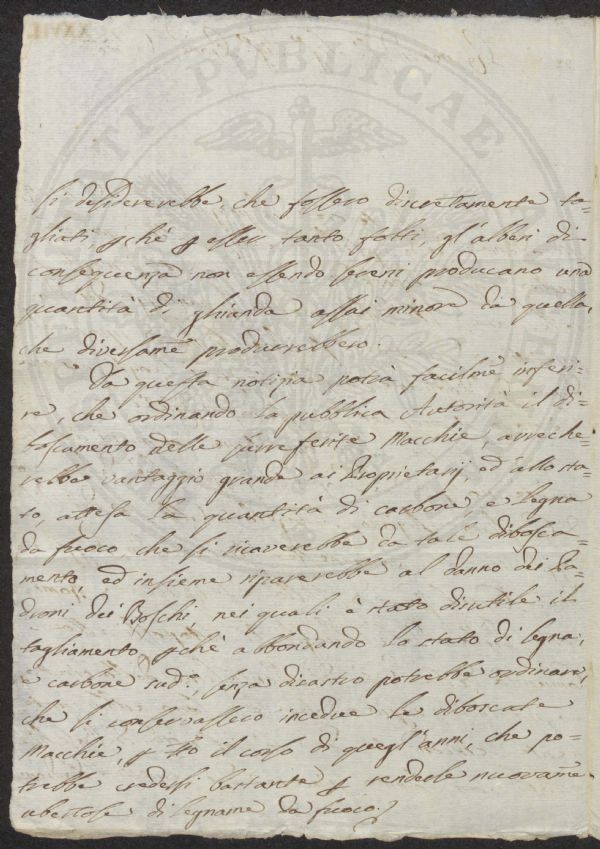 XXVII
TI PVBLICAE
Si desidererebbe che fossero discretamente ta-
gliati, pchè p esser tanto folti, gl'alberi di
conseguenza non essendo sereni producano una
quantità di ghianda assai minore da quella,
che diversame produrrebbero.
Da questa notizia potrà facilme inferi-
re, che ordinando la pubblica Autorità il di-
boscamento delle surreferite Macchie, arreche-
rebbe vantaggio grande ai Proprietarj, ed allo sta-
to, attesa la quantità di carbone, e legna
da fuoco che si ricaverebbe da tale diboscа-
mento ed insieme riparerebbe al danno dei Pa-
droni dei Boschi, nei quali è stato disutile il
tagliamento, pchè abbondando lo stato di legna,
e carbone sud.o senza dicastro potrebbe ordinare,
che si conservassero incedue le diboscate
Macchie, p tto il corso di quegl'anni, che po-
trebbe credersi bastante p renderle nuovame
ubertose di legname da fuoco.